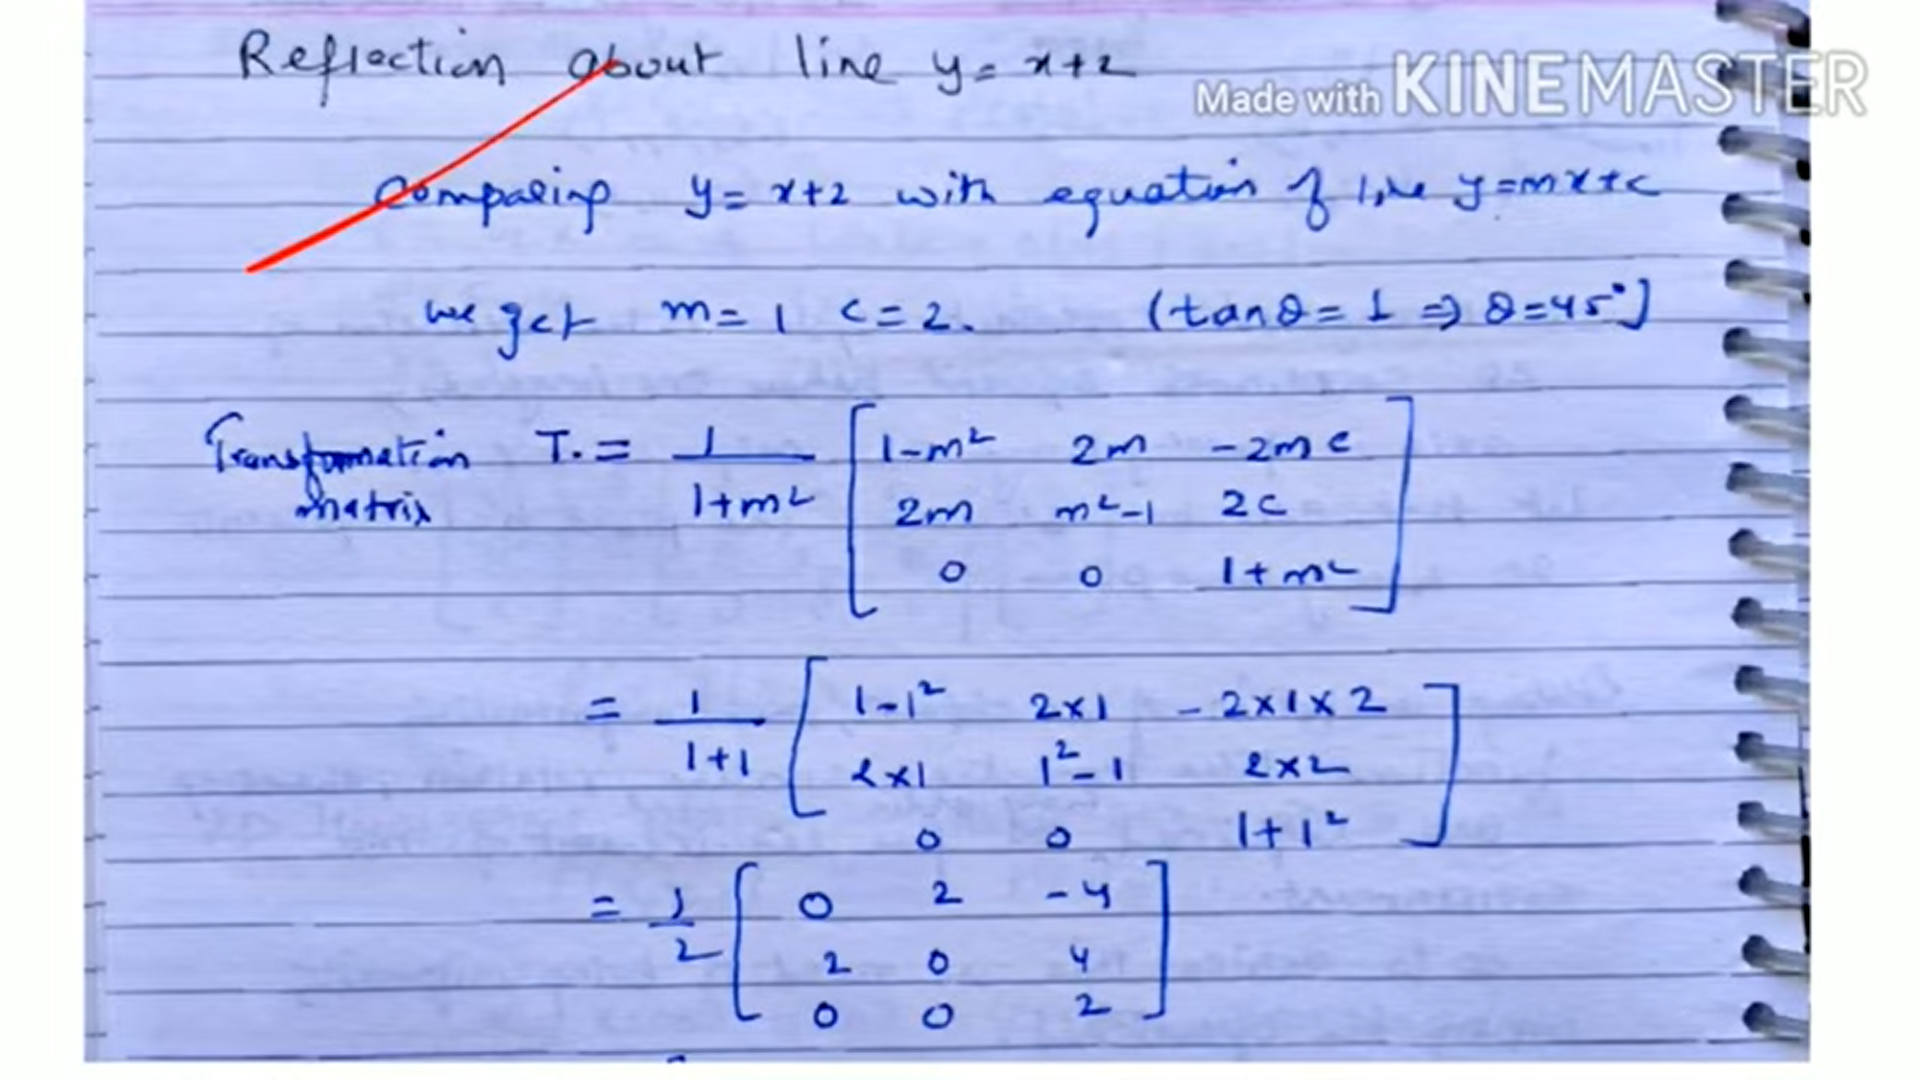 Reflection about line y = x+2
Made with KINEMASTER
Comparing y = x+2 with equation of line y=mx+c
we get m = 1 c = 2. (tanθ = 1 ⇒ θ=45°]
Transformation matrix T. = 1/1+m² [1-m² 2m -2mc
2m m²-1 2c
0 0 1+m²]
= 1/1+1 [1-1² 2×1 -2×1×2
2×1 1²-1 2×2
0 0 1+1²]
= 1/2 [0 2 -4
2 0 4
0 0 2]